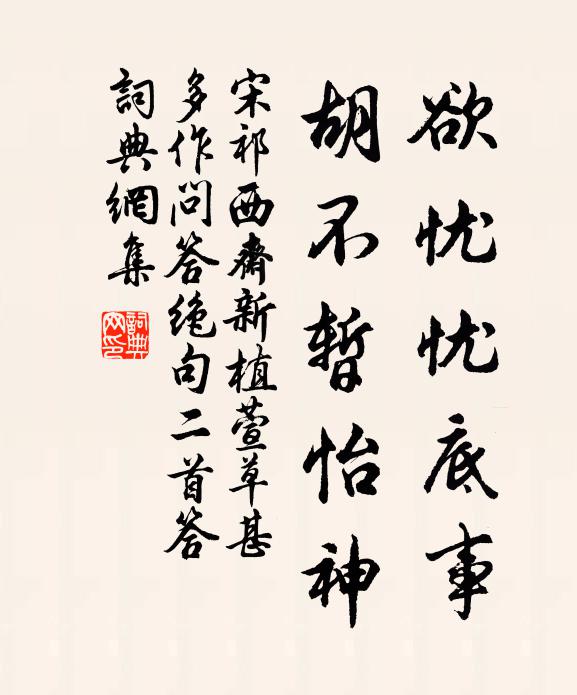 欲忧忧底事
胡不暂怡神
宋祁西斋新植萱草甚
多作问答绝句二首答
詞典網集
詞典
网印